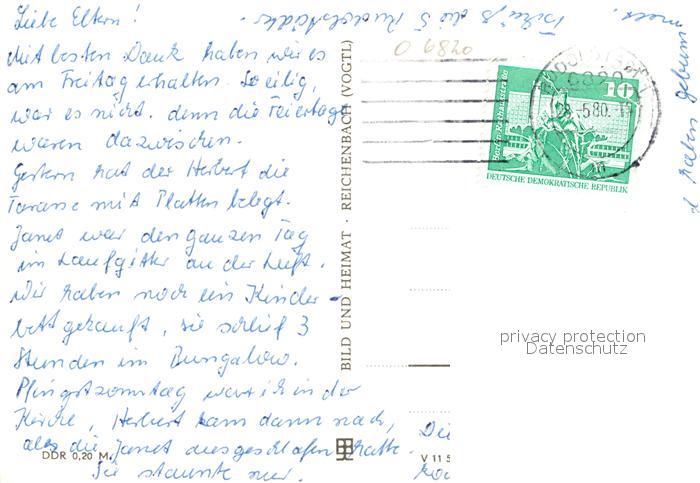 Liebe Eltern!
Mit besten Dank haben wir es
am Freitag erhalten. So eilig,
war es nicht, denn die Feiertage
waren dazwischen.
Gestern hat der Herbert die
Terasse mit Platten belegt.
Janet war den ganzen Tag
im Laufgitter an der Luft.
Wir haben noch ein Kinder-
bett gekauft, sie schlief 3
Stunden im Bungalow.
Pfingstsonntag war ich in der
Kirche, Herbert kam dann nach,
als die Janet ausgeschlafen hatte.
Sie staunte nur.
Tschüß die 5 Rudolstädter.
haben gebum
meer.
BILD UND HEIMAT · REICHENBACH (VOGTL)
DDR 0,20 M
V 11 5
Die
O 6820
6820
-5 80.-11
10
DEUTSCHE DEMOKRATISCHE REPUBLIK
privacy protection
Datenschutz